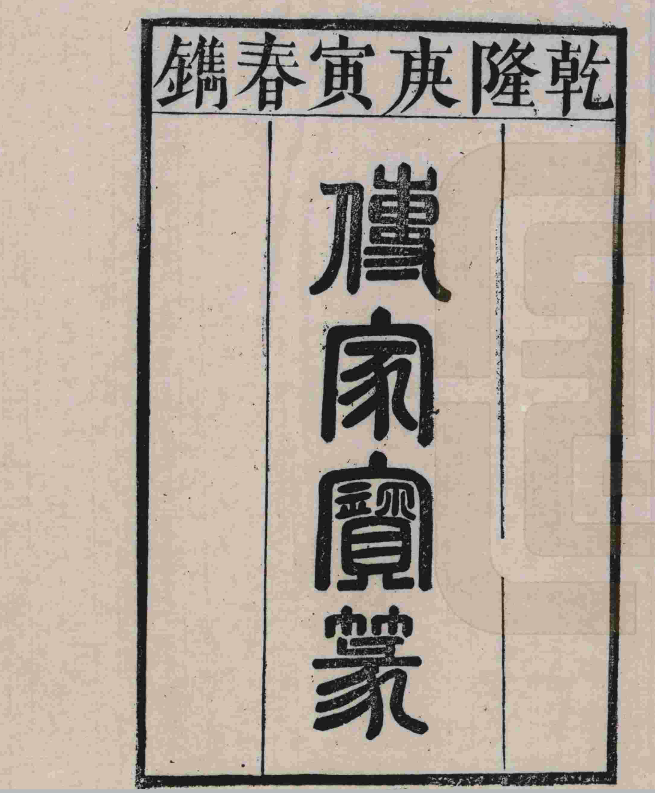 乾隆庚寅春鐫
傳家寶篆